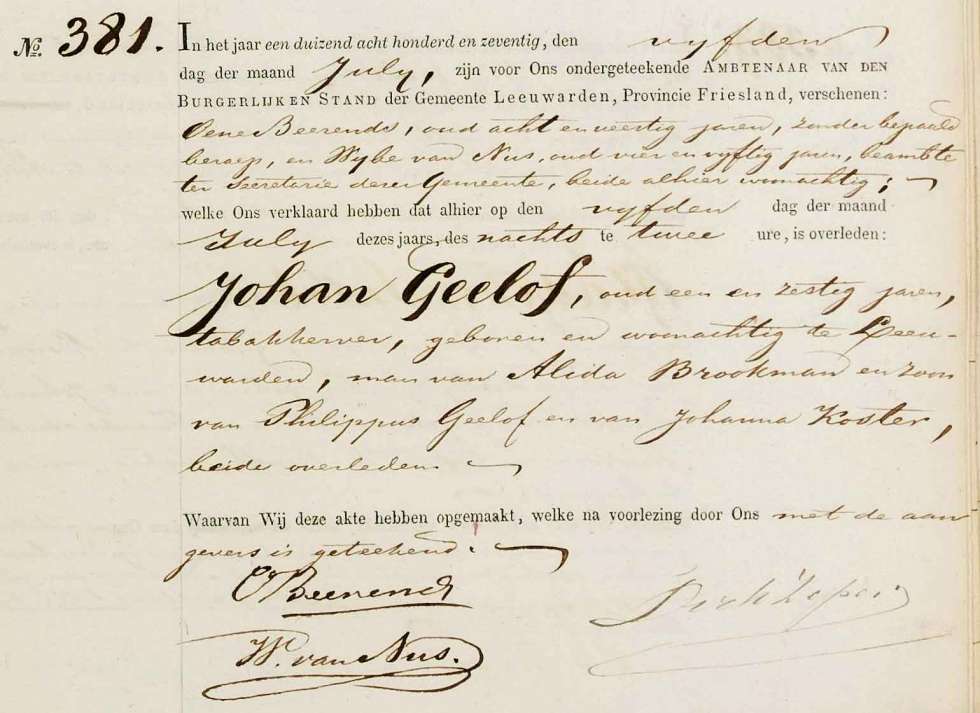 No. 381. In het jaar een duizend acht honderd en zeventig, den vyfden
dag der maand July, zijn voor Ons ondergeteekende AMBTENAAR VAN DEN
BURGERLIJKEN STAND der Gemeente Leeuwarden, Provincie Friesland, verschenen:
Oene Beerends, oud acht en veertig jaren, zonder bepaald
beroep, en Wybe van Nus, oud vier en vyftig jaren, beambte
ter secretarie dezer Gemeente, beide alhier woonachtig;
welke Ons verklaard hebben dat alhier op den vyfden dag der maand
July dezes jaars, des nachts te twee ure, is overleden:
Johan Geelof, oud een en zestig jaren,
tabakkerver, geboren en woonachtig te Leeu-
warden, man van Alida Brookman en zoon
van Philippus Geelof en van Johanna Koster,
beide overleden
Waarvan Wij deze akte hebben opgemaakt, welke na voorlezing door Ons met de aan-
gevers is geteekend.
O Beerends
W. van Nus.